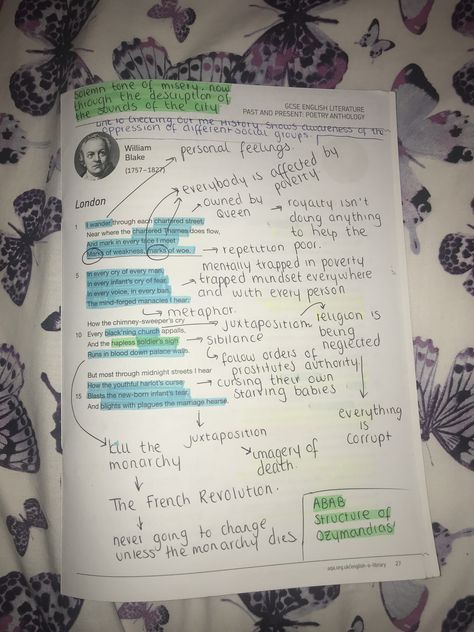 solemn tone of misery, now
through the description of
sounds of the city
GCSE ENGLISH LITERATURE
PAST AND PRESENT: POETRY ANTHOLOGY
checking out the History shows awareness of the
oppression of different social groups
William
Blake
(1757–1827)
personal feelings.
everybody is affected by
poverty
owned by
Queen
royalty isn't
doing anything
to help the
poor.
London
1 I wander through each chartered street,
Near where the chartered Thames does flow,
And mark in every face I meet
Marks of weakness, marks of woe.
repetition
5 In every cry of every man,
In every infant's cry of fear,
In every voice, in every ban,
The mind-forged manacles I hear:
mentally trapped in poverty
trapped mindset everywhere
and with every person
metaphor.
How the chimney-sweeper's cry
10 Every black'ning church appalls,
And the hapless soldier's sigh
Runs in blood down palace walls.
juxtaposition
religion is
being
neglected
Sibilance
follow orders of
authority
But most through midnight streets I hear
How the youthful harlot's curse
15 Blasts the new-born infant's tear,
And blights with plagues the marriage hearse.
prostitutes
cursing their own
starving babies
everything
is
corrupt
juxtaposition
imagery of
death.
kill the
monarchy
The French Revolution.
never going to change
unless the monarchy dies
ABAB
structure of
Ozymandias
aqa.org.uk/english-e-library 27